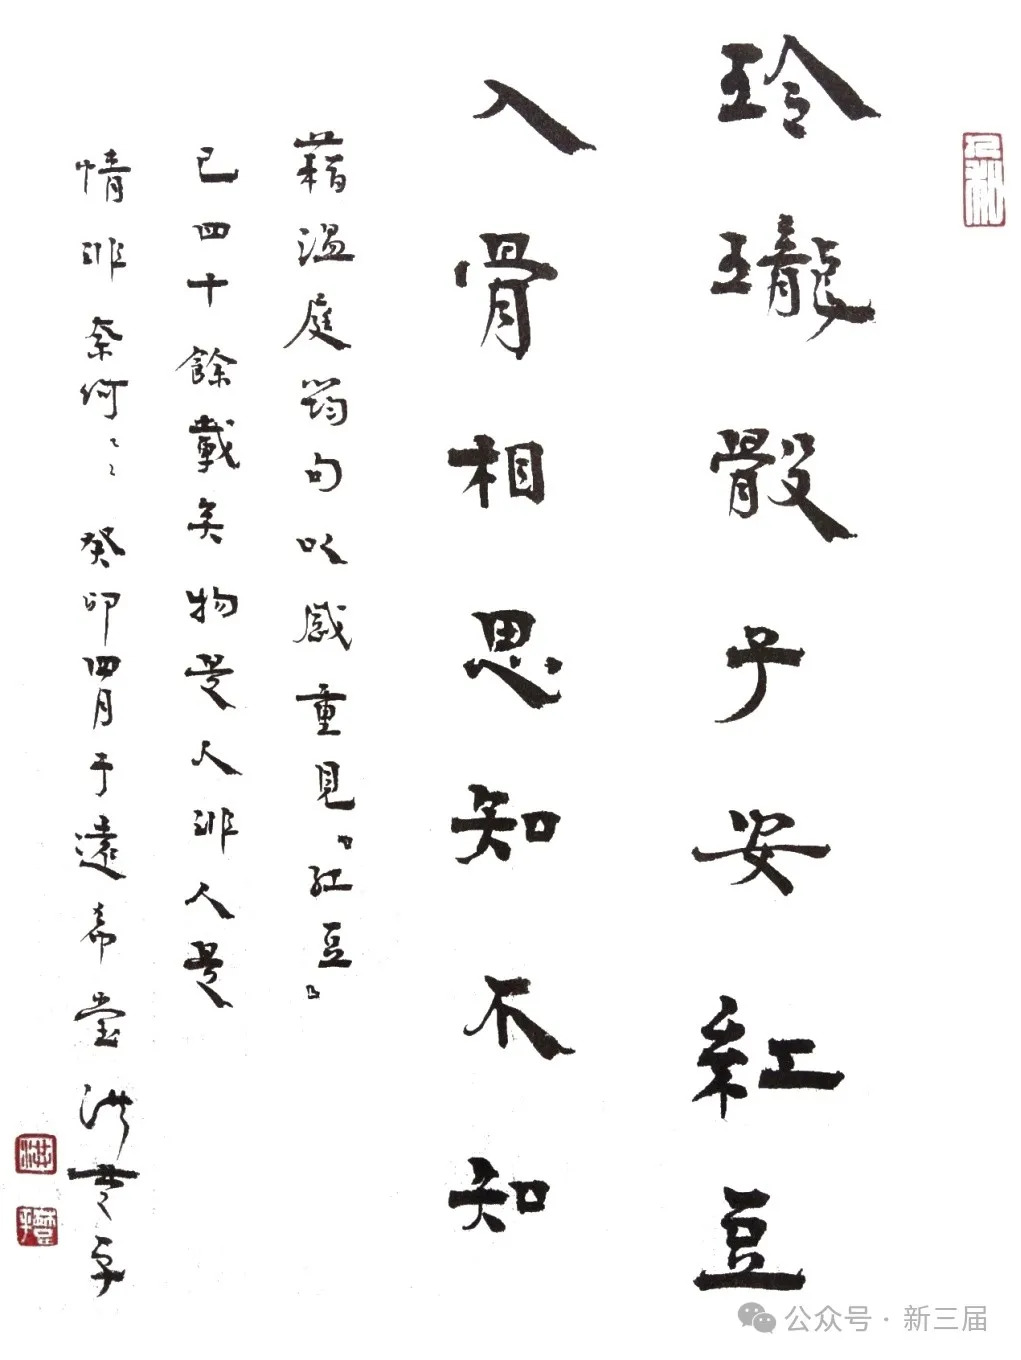 玲瓏骰子安紅豆
入骨相思知不知
藉溫庭筠句以感重見『紅豆』
已四十餘載矣物是人非人是
情非奈何〻〻癸卯四月于遠希堂洪
洪
公众号 · 新三届